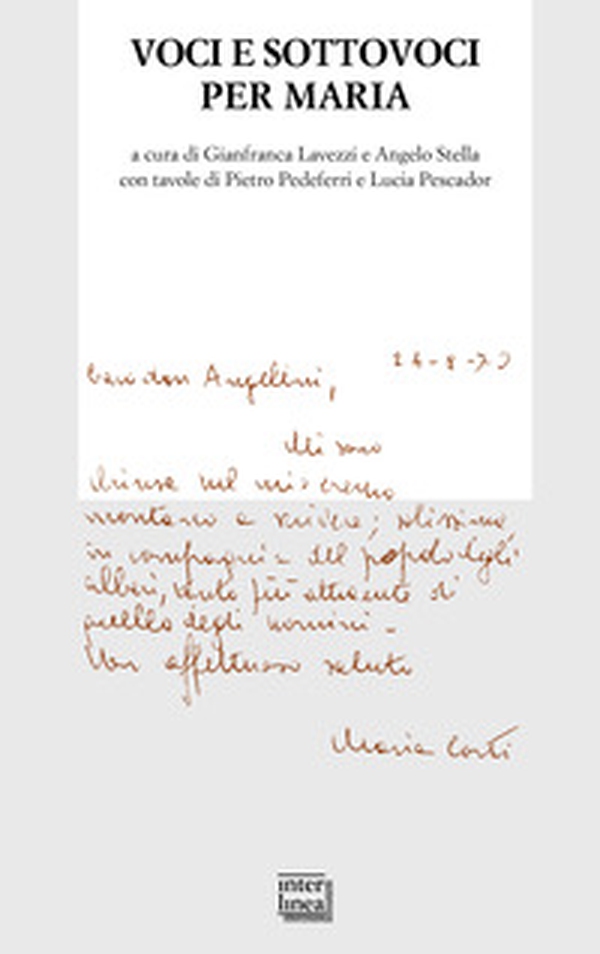 VOCI E SOTTOVOCI
PER MARIA
a cura di Gianfranca Lavezzi e Angelo Stella
con tavole di Pietro Pedeferri e Lucia Pescador
Caro don Angelini,
Mi sono
chiusa nel mio eremo
montano a scrivere; solissima,
in compagnia del popolo degli
alberi, tanto più attraente di
quello degli uomini.
Un affettuoso saluto
Maria Corti
inter
linea